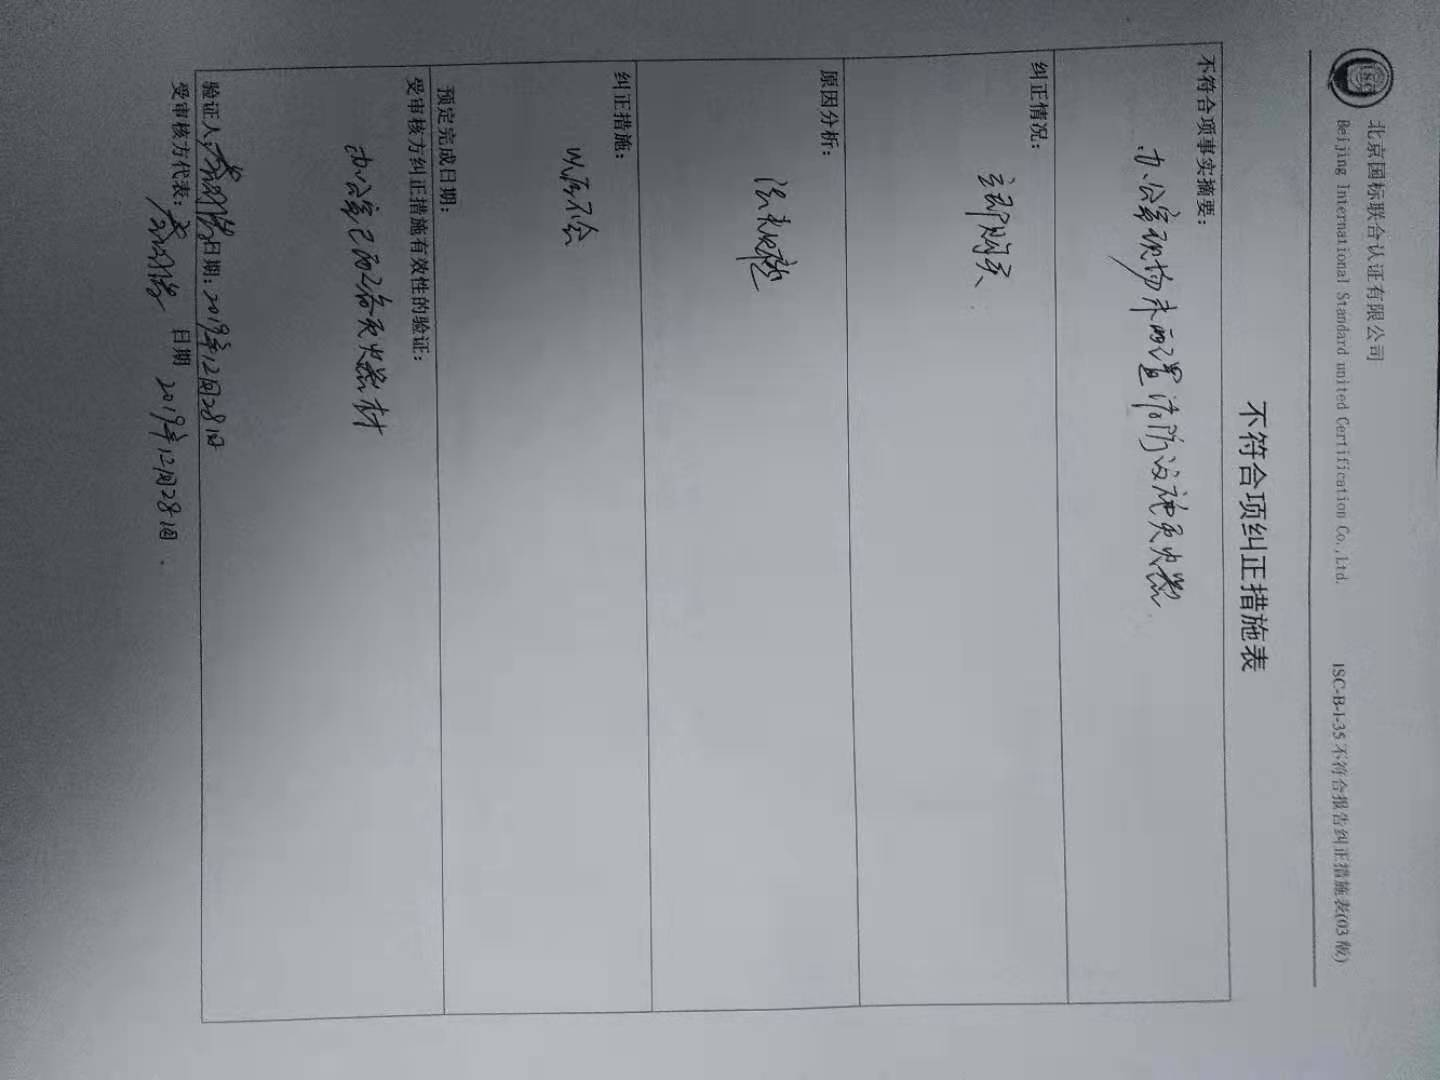 北京国标联合认证有限公司
Beijing International Standard united Certification Co.,Ltd. ISC-B-I-35 不符合报告纠正措施表(03 版)
不符合项纠正措施表
不符合项事实摘要:
办公室现场未配置消防设施灭火器
纠正情况:
立即购买
原因分析:
纠正措施:
以后不会
预定完成日期:
受审核方纠正措施有效性的验证:
办公室已配备灭火器材
验证人: 日期: 2019年12月28日
受审核方代表: 日期 2019年12月28日